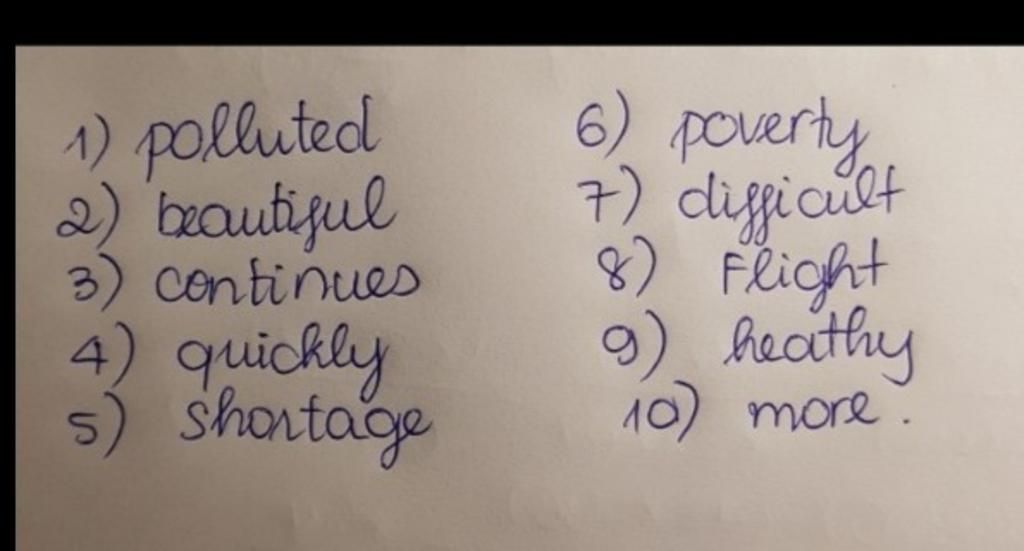 1) polluted
2) beautiful
3) continues
4) quickly
5) shortage
6) poverty
7) difficult
8) Flight
9) heathy
10) more.